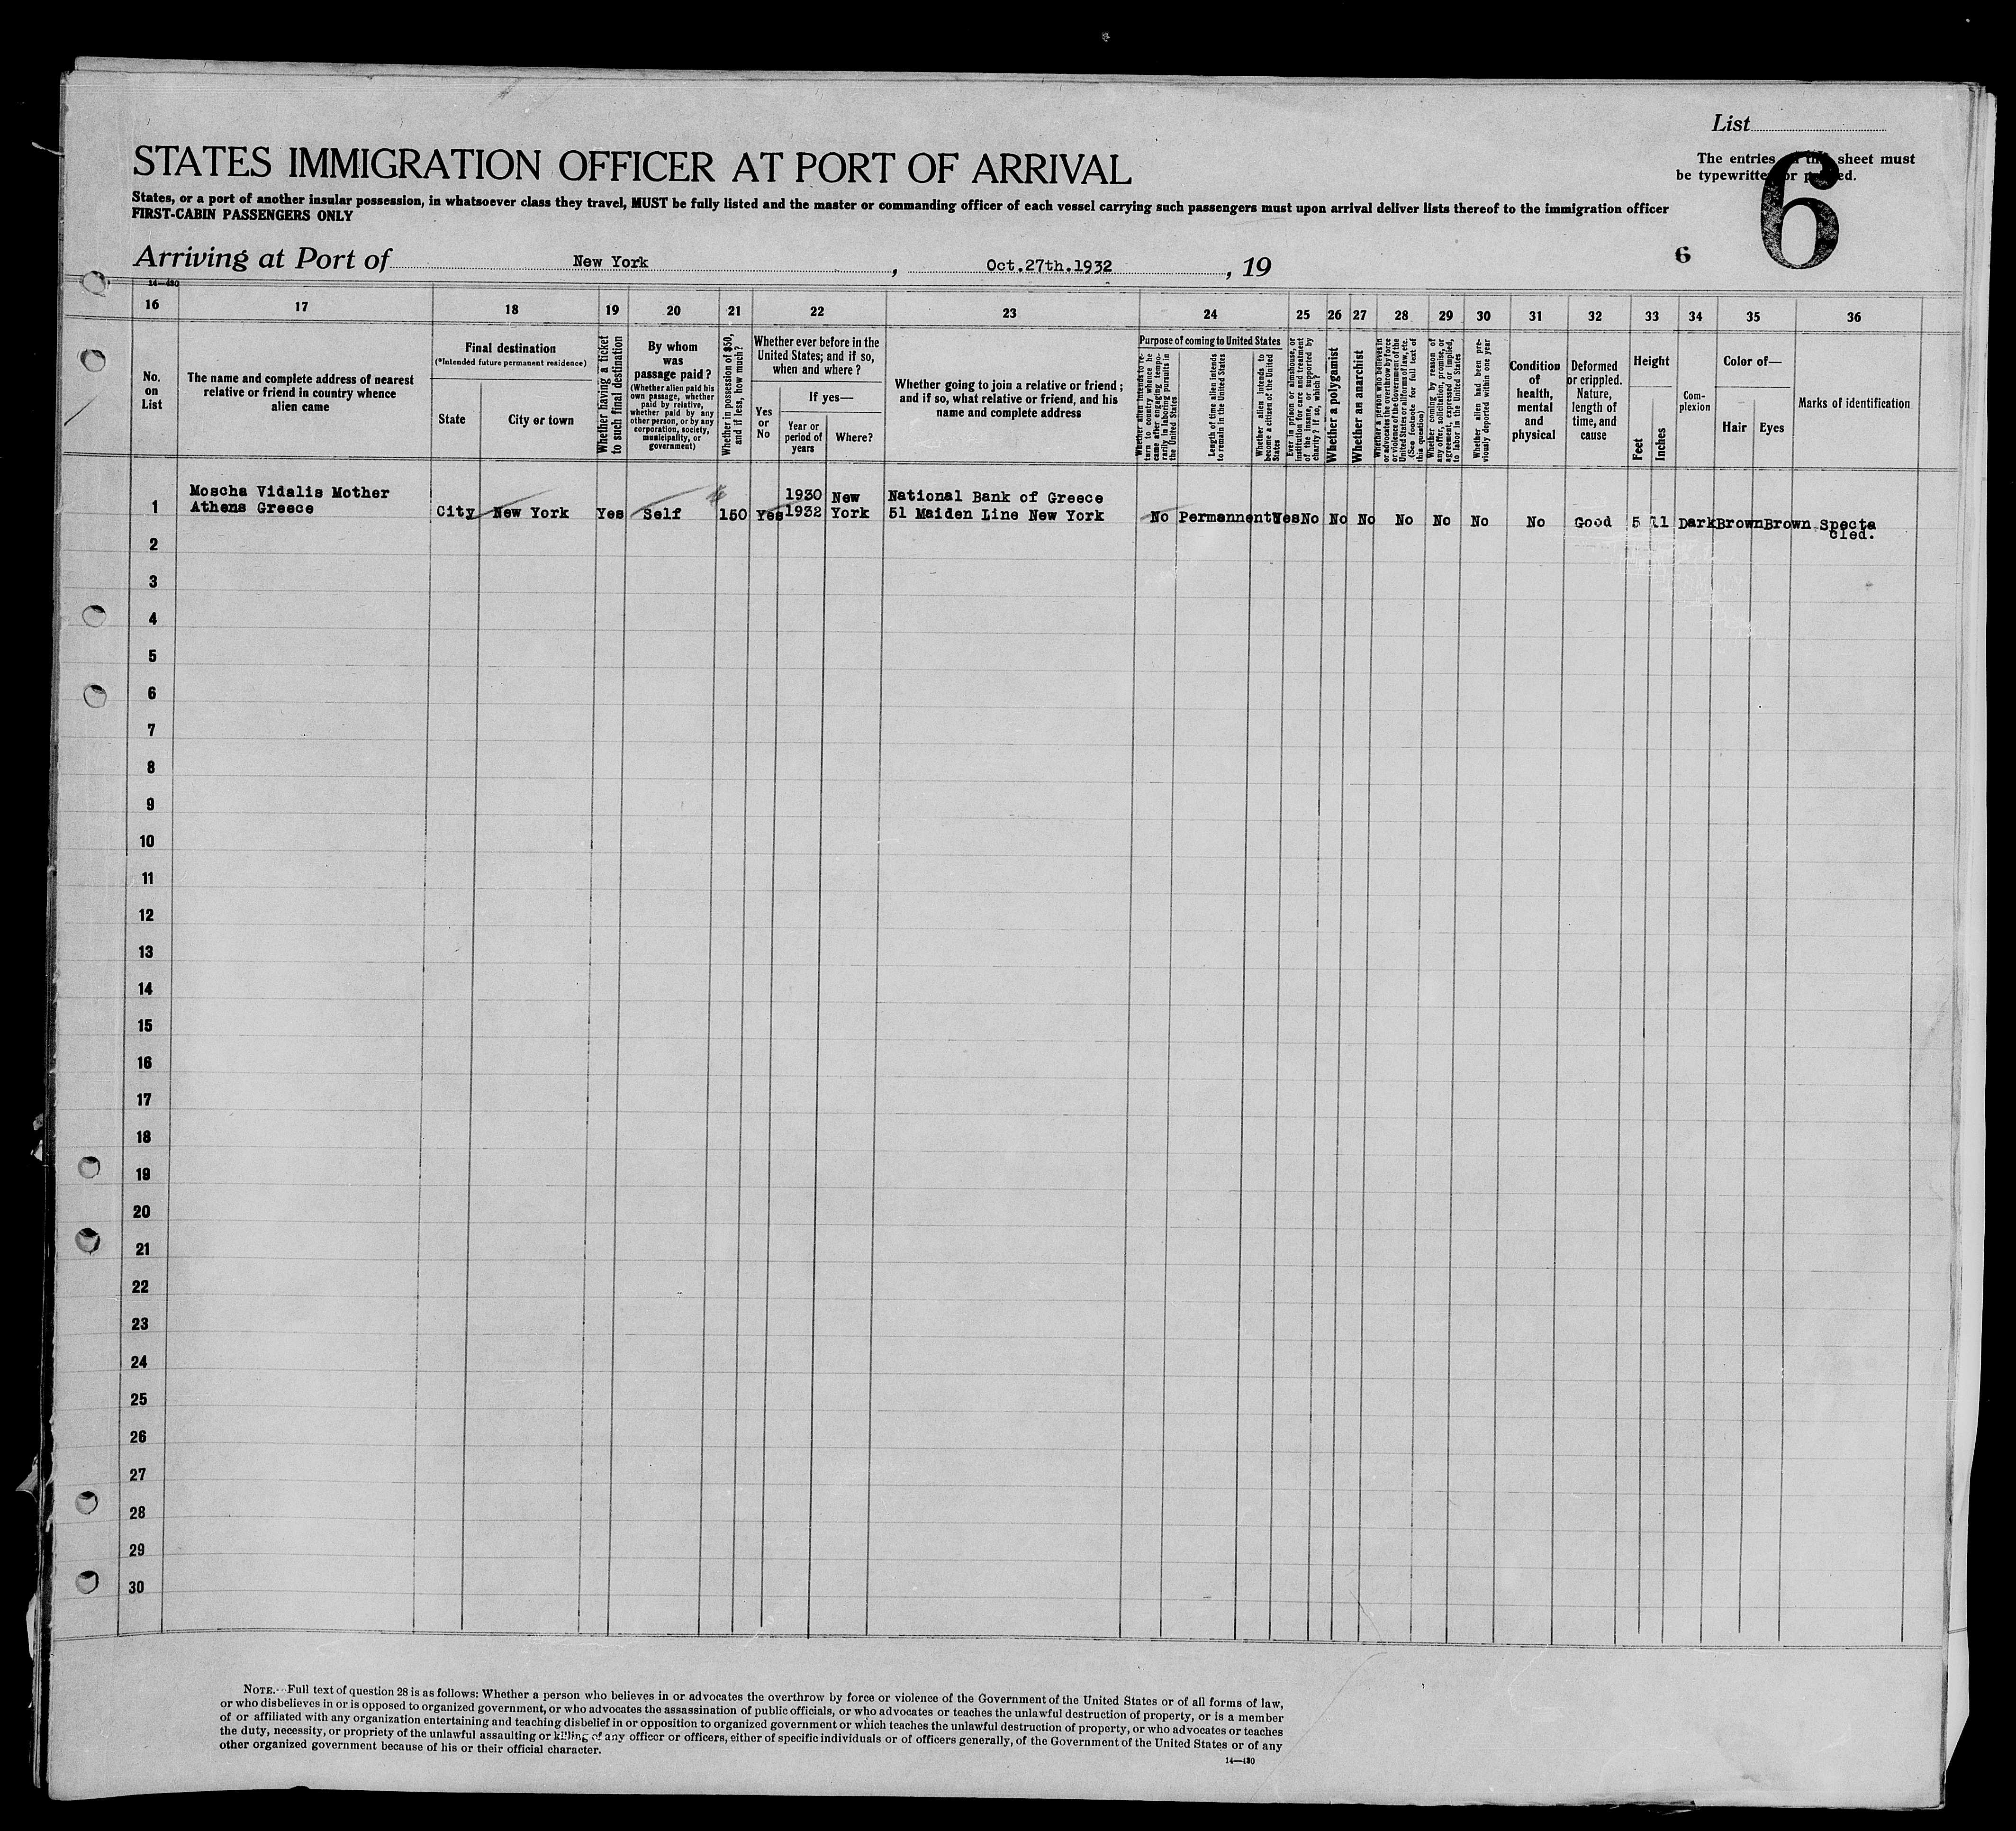 List
The entries on this sheet must
be typewritten or printed.
6
STATES IMMIGRATION OFFICER AT PORT OF ARRIVAL
States, or a port of another insular possession, in whatsoever class they travel, MUST be fully listed and the master or commanding officer of each vessel carrying such passengers must upon arrival deliver lists thereof to the immigration officer
FIRST-CABIN PASSENGERS ONLY
Arriving at Port of New York, Oct.27th.1932, 19
6
14—430
16 17 18 19 20 21 22 23 24 25 26 27 28 29 30 31 32 33 34 35 36
No.
on
List
The name and complete address of nearest
relative or friend in country whence
alien came
Final destination
(*Intended future permanent residence)
State
City or town
Whether having a ticket
to such final destination
By whom
was
passage paid?
(Whether alien paid his
own passage, whether
paid by relative,
whether paid by any
other person, or by any
corporation, society,
municipality, or
government)
Whether in possession of $50,
and if less, how much?
Whether ever before in the
United States; and if so,
when and where?
Yes
or
No
If yes—
Year or
period of
years
Where?
Whether going to join a relative or friend;
and if so, what relative or friend, and his
name and complete address
Purpose of coming to United States
Whether alien intends to re-
turn to country whence he
came after engaging tempo-
rarily in laboring pursuits in
the United States
Length of time alien intends
to remain in the United States
Whether alien intends to
become a citizen of the United
States
Ever in prison or almshouse, or
institution for care and treatment
of the insane, or supported by
charity? If so, which?
Whether a polygamist
Whether an anarchist
Whether a person who believes in
or advocates the overthrow by force
or violence of the Government of the
United States or all forms of law, etc.
(See footnote for full text of
this question)
Whether coming by reason of
any offer, solicitation, promise, or
agreement, expressed or implied,
to labor in the United States
Whether alien had been pre-
viously deported within one year
Condition
of
health,
mental
and
physical
Deformed
or crippled.
Nature,
length of
time, and
cause
Height
Feet
Inches
Com-
plexion
Color of—
Hair
Eyes
Marks of identification
Moscha Vidalis Mother 1930 New National Bank of Greece
1 Athens Greece City New York Yes Self 150 Yes 1932 York 51 Maiden Line New York No Permannent Yes No No No No No No No Good 5 11 Dark Brown Brown Specta
cled.
2
3
4
5
6
7
8
9
10
11
12
13
14
15
16
17
18
19
20
21
22
23
24
25
26
27
28
29
30
NOTE.—Full text of question 28 is as follows: Whether a person who believes in or advocates the overthrow by force or violence of the Government of the United States or of all forms of law,
or who disbelieves in or is opposed to organized government, or who advocates the assassination of public officials, or who advocates or teaches the unlawful destruction of property, or is a member
of or affiliated with any organization entertaining and teaching disbelief in or opposition to organized government or which teaches the unlawful destruction of property, or who advocates or teaches
the duty, necessity, or propriety of the unlawful assaulting or killing of any officer or officers, either of specific individuals or of officers generally, of the Government of the United States or of any
other organized government because of his or their official character.
14—430